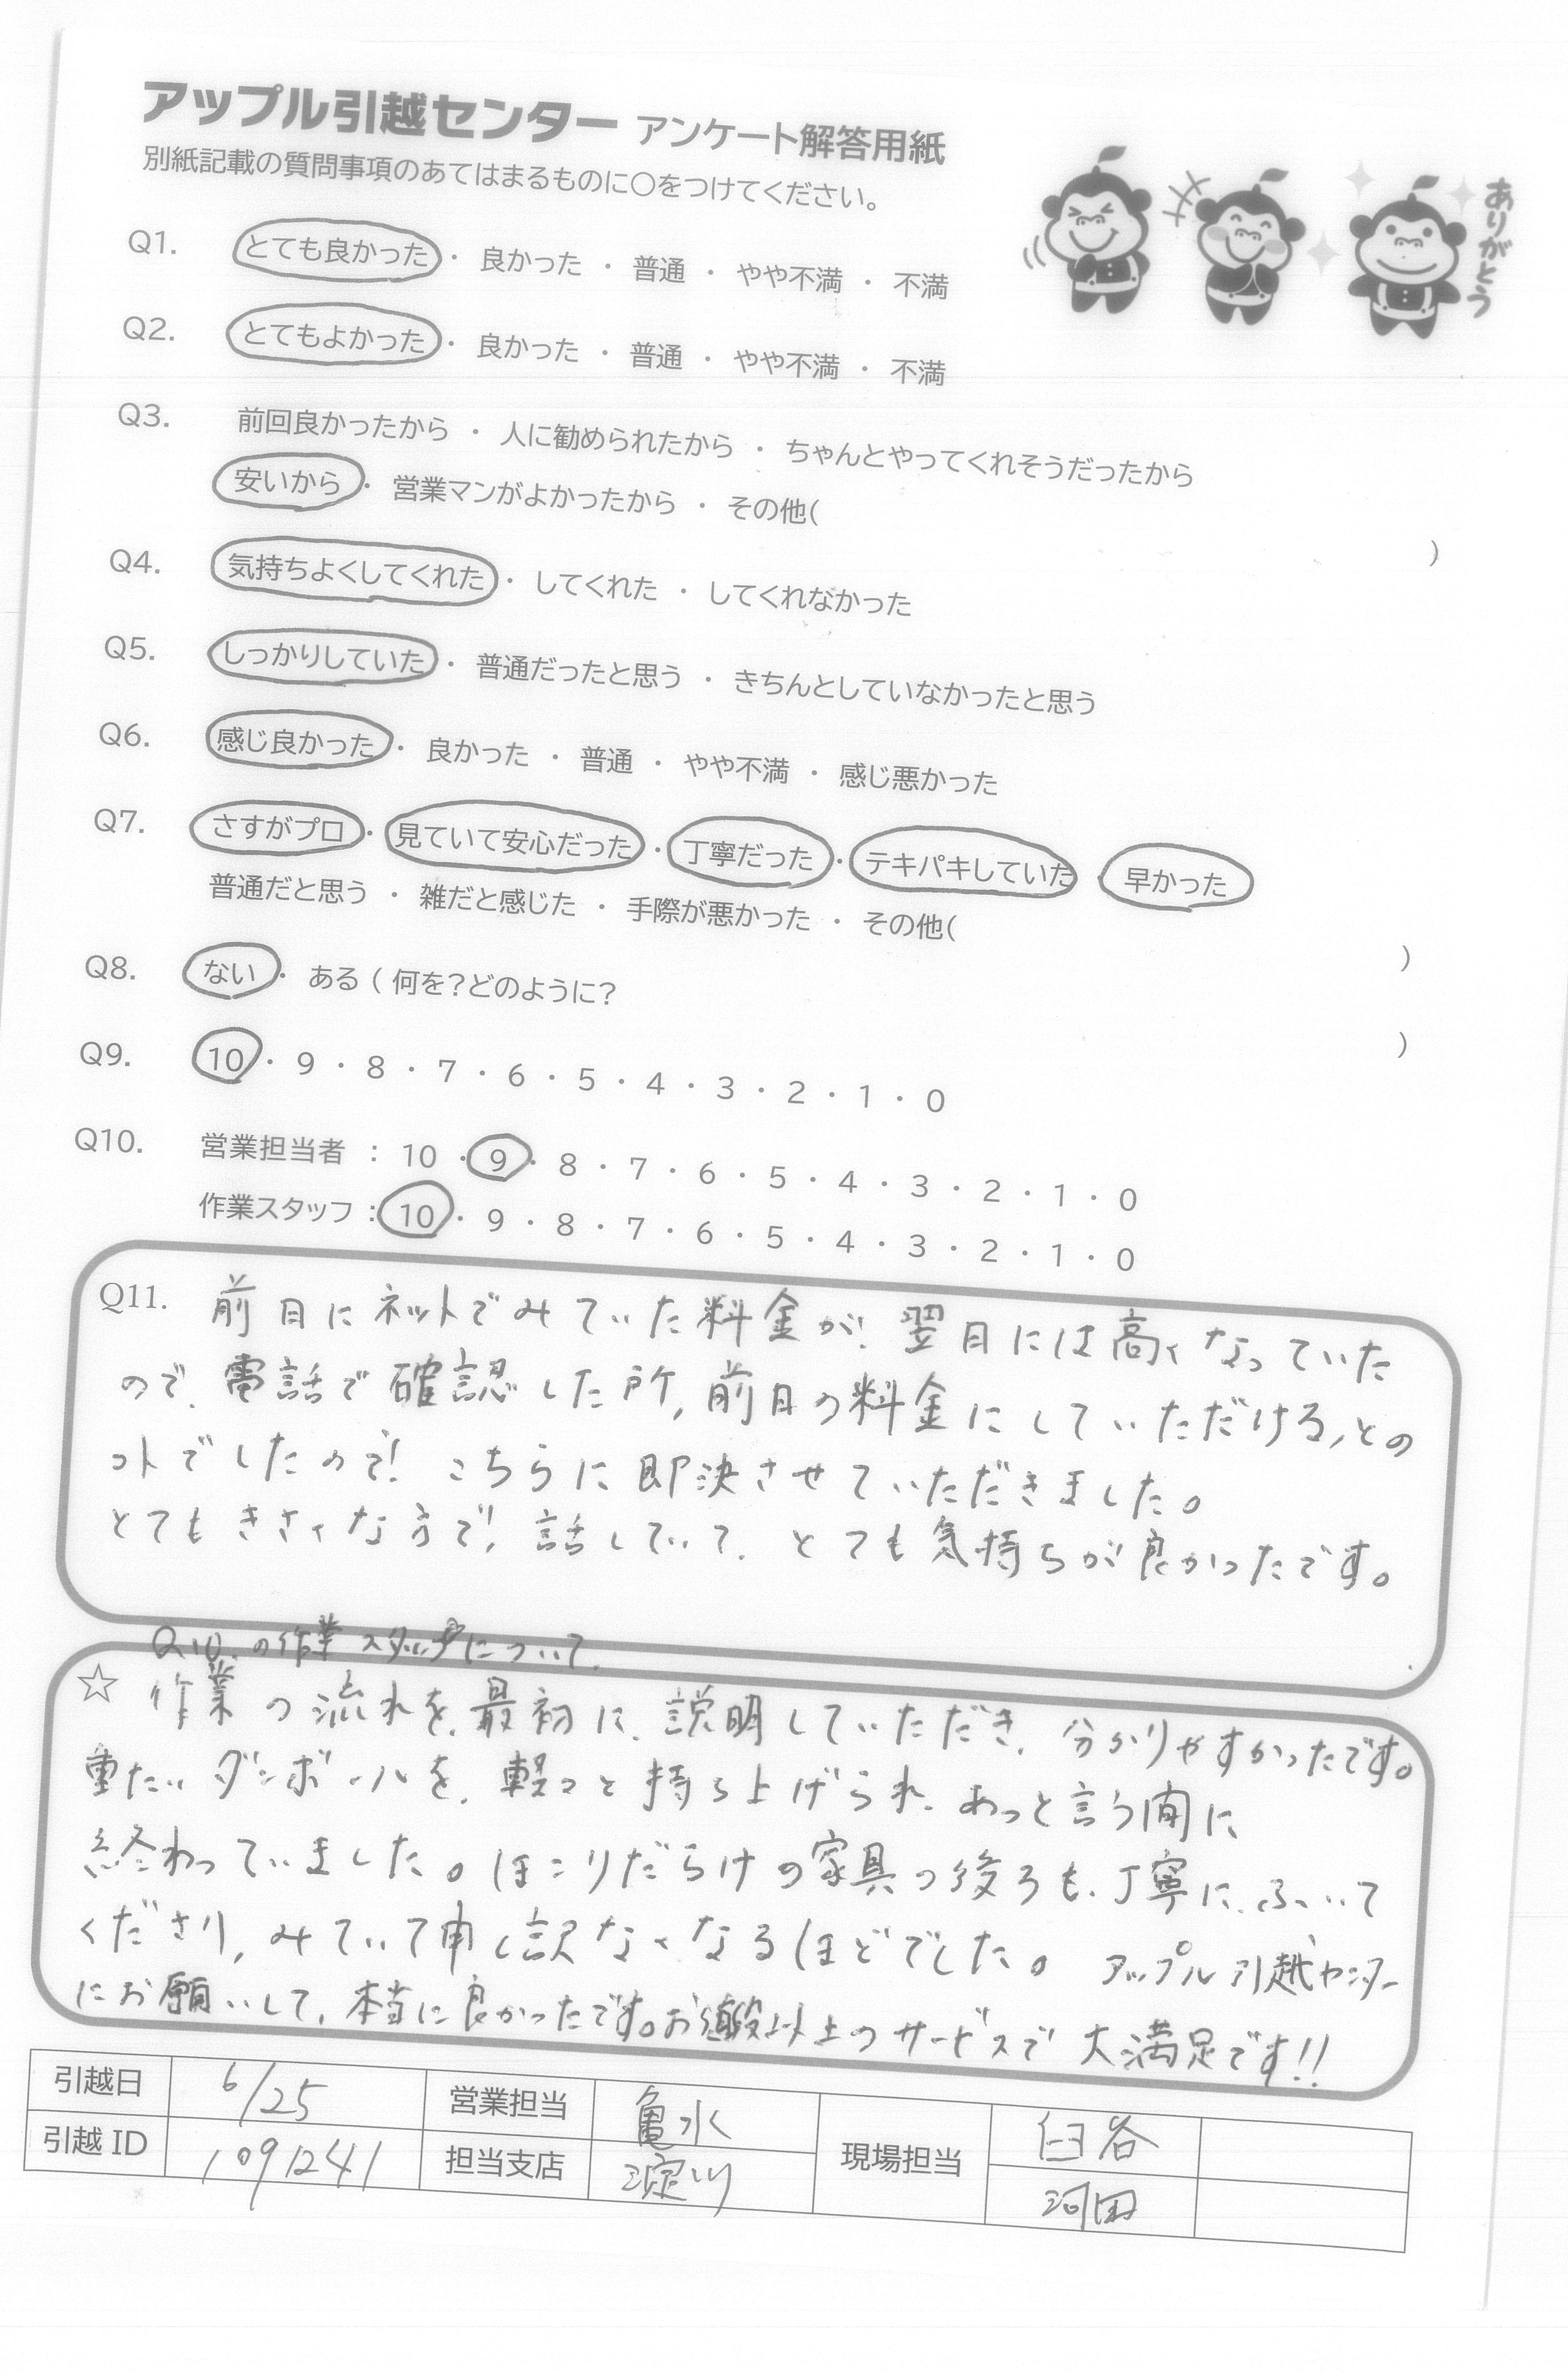 アップル引越センター アンケート解答用紙
別紙記載の質問事項のあてはまるものに○をつけてください。
ありがとう
Q1. とても良かった ・ 良かった ・ 普通 ・ やや不満 ・ 不満
Q2. とてもよかった ・ 良かった ・ 普通 ・ やや不満 ・ 不満
Q3. 前回良かったから ・ 人に勧められたから ・ ちゃんとやってくれそうだったから
安いから ・ 営業マンがよかったから ・ その他( )
Q4. 気持ちよくしてくれた ・ してくれた ・ してくれなかった
Q5. しっかりしていた ・ 普通だったと思う ・ きちんとしていなかったと思う
Q6. 感じ良かった ・ 良かった ・ 普通 ・ やや不満 ・ 感じ悪かった
Q7. さすがプロ ・ 見ていて安心だった ・ 丁寧だった ・ テキパキしていた ・ 早かった
普通だと思う ・ 雑だと感じた ・ 手際が悪かった ・ その他( )
Q8. ない ・ ある ( 何を?どのように? )
Q9. 10 ・ 9 ・ 8 ・ 7 ・ 6 ・ 5 ・ 4 ・ 3 ・ 2 ・ 1 ・ 0
Q10. 営業担当者 : 10 ・ 9 ・ 8 ・ 7 ・ 6 ・ 5 ・ 4 ・ 3 ・ 2 ・ 1 ・ 0
作業スタッフ : 10 ・ 9 ・ 8 ・ 7 ・ 6 ・ 5 ・ 4 ・ 3 ・ 2 ・ 1 ・ 0
Q11. 前日にネットでみていた料金が、翌日には高くなっていた
ので、電話で確認した所、前日の料金にしていただける、との
コトでしたので! こちらに即決させていただきました。
とてもきさくな方で、話していて、とても気持ちが良かったです。
Q10.の作業スタッフについて、
☆ 作業の流れを、最初に、説明していただき、分かりやすかったです。
重たいダンボールを、軽々と持ち上げられ、あっと言う間に
終わっていました。ほこりだらけの家具の後ろも、丁寧に、ふいて
くださり、みていて申し訳なくなるほどでした。 アップル引越センター
にお願いして、本当に良かったです。お値段以上のサービスで大満足です!!
引越日 6/25 営業担当 亀水 現場担当 臼谷
引越ID 1091241 担当支店 淀川 河田